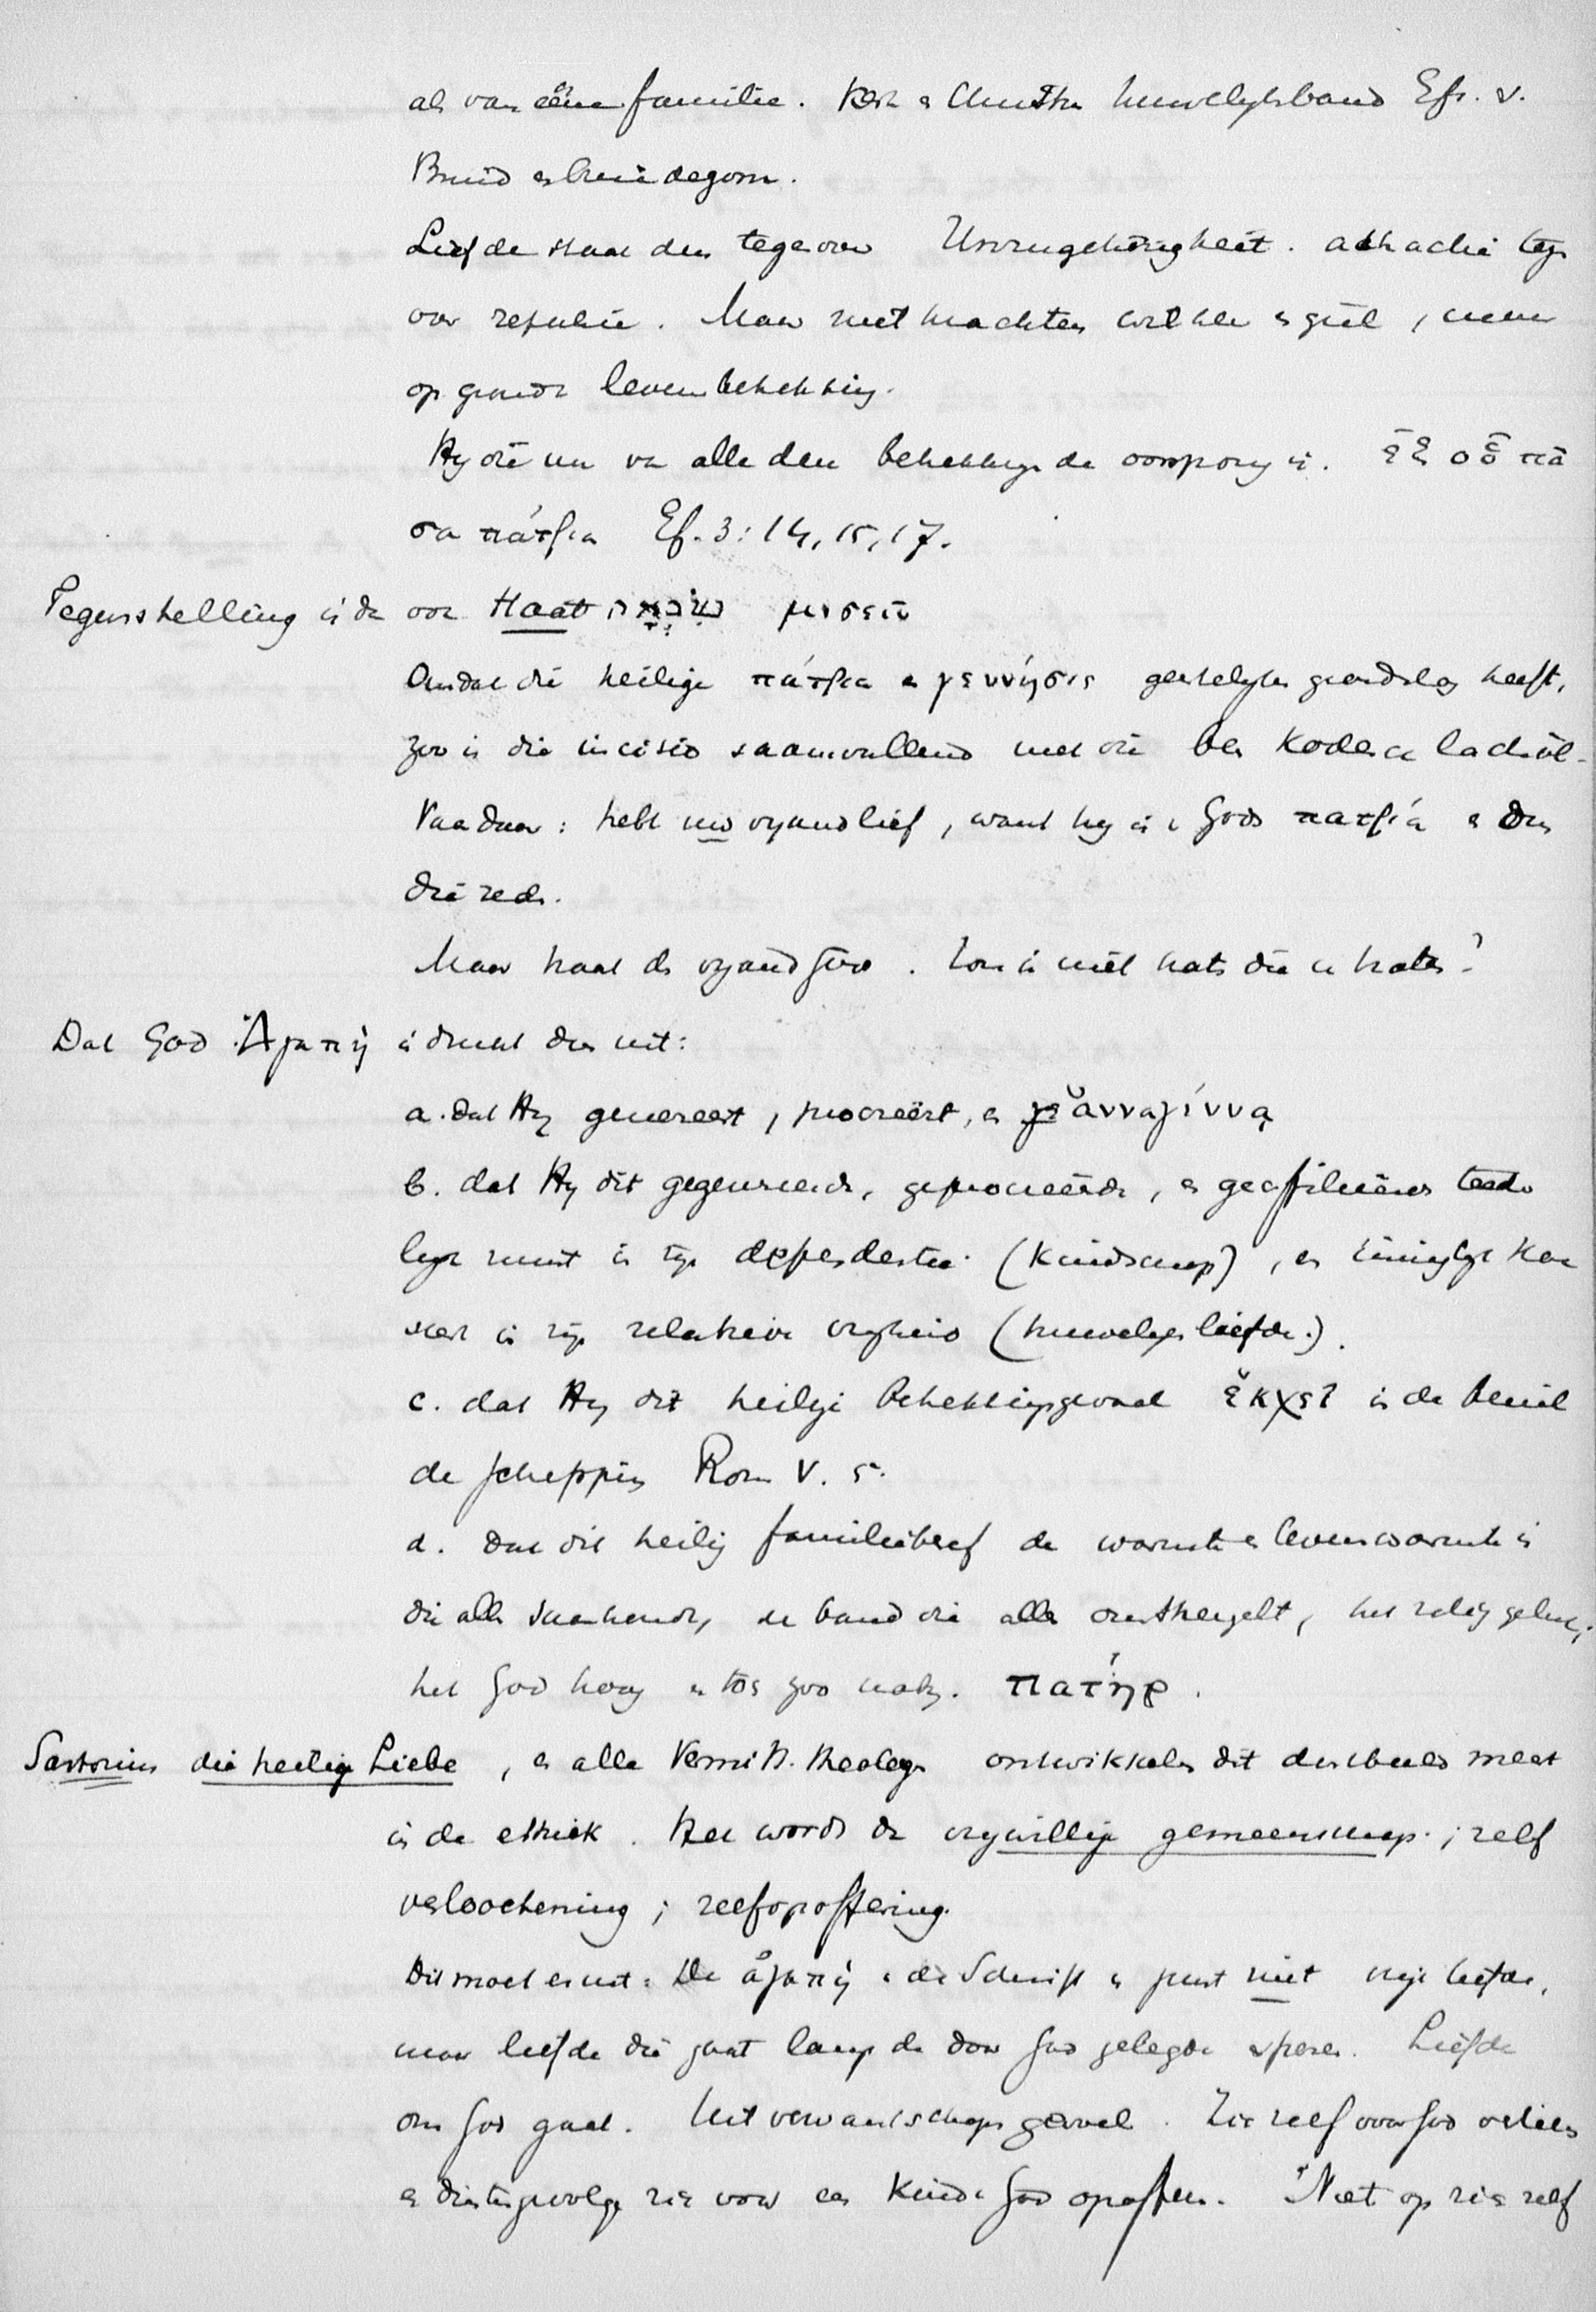 als van ééne familie. Kerk en Christus huwelijksband Efz. V.
Bruid en bruidegom.
Liefde staat dus tegenover Unzugehörigkeit. attractie tegen
over repulsie. Maar niet krachtens wilskeur en gril, maar
op grond v levensbetrekking.
Hij die nu van alle deze betrekkingen de oorsprong is. ἐξ οὗ πᾶ
σα πάτρια Ef. 3:14, 15, 17.
Tegenstelling is de oor Haat μισεῖν
Omdat die heilige πάτρια en γεννήσις geestelijken grondslag heeft,
zoo is die incisie saamvallend met die
Vandaar: hebt uw vyand lief, want hij is v Gods πατρία en dus
die reden.
Maar haat de vyand Gods. Zou ik niet haten die u haten?
Dat God Ἀγαπή is drukt dus uit:
a. dat Hij genereert, procreëert, en ἀνναγίννα
b. dat Hij dit gegenereerde, geprocreëerde, en geaffilieerde teeder
lijk mint in zijn dependentie (Kindschap), en innerlijk
in zijn relatieve vrijheid (huwelijksliefde.).
c. dat Hij dit heilige betrekkingsgevoel ἐκχεῖ in de bezield
de schepping Rom V. 5.
d. Dat dit heilig familiebesef de warmte en levenswarmte is
die alles saamhoudt, de band die alles omstrengelt, het zalig geluk,
het God hoog en tóch zoo nabij. πατήρ.
Sartorius die heilige Liebe, en alle Vermitt. theologen ontwikkelen dit denkbeeld meest
in de ethiek. Het wordt de vrijwillige gemeenschap; zelf
verloochening; zelfopoffering.
Dit moet er uit: De ἀγαπή in de Schrift is juist niet vrije liefde,
maar liefde die gaat langs de door God gelegde sporen. Liefde
om God gaat. Uit verwantschapsgevoel. Zich zelf voor God verliezen
en dientengevolge zich voor een Kind v God opofferen. Niet op zich zelf